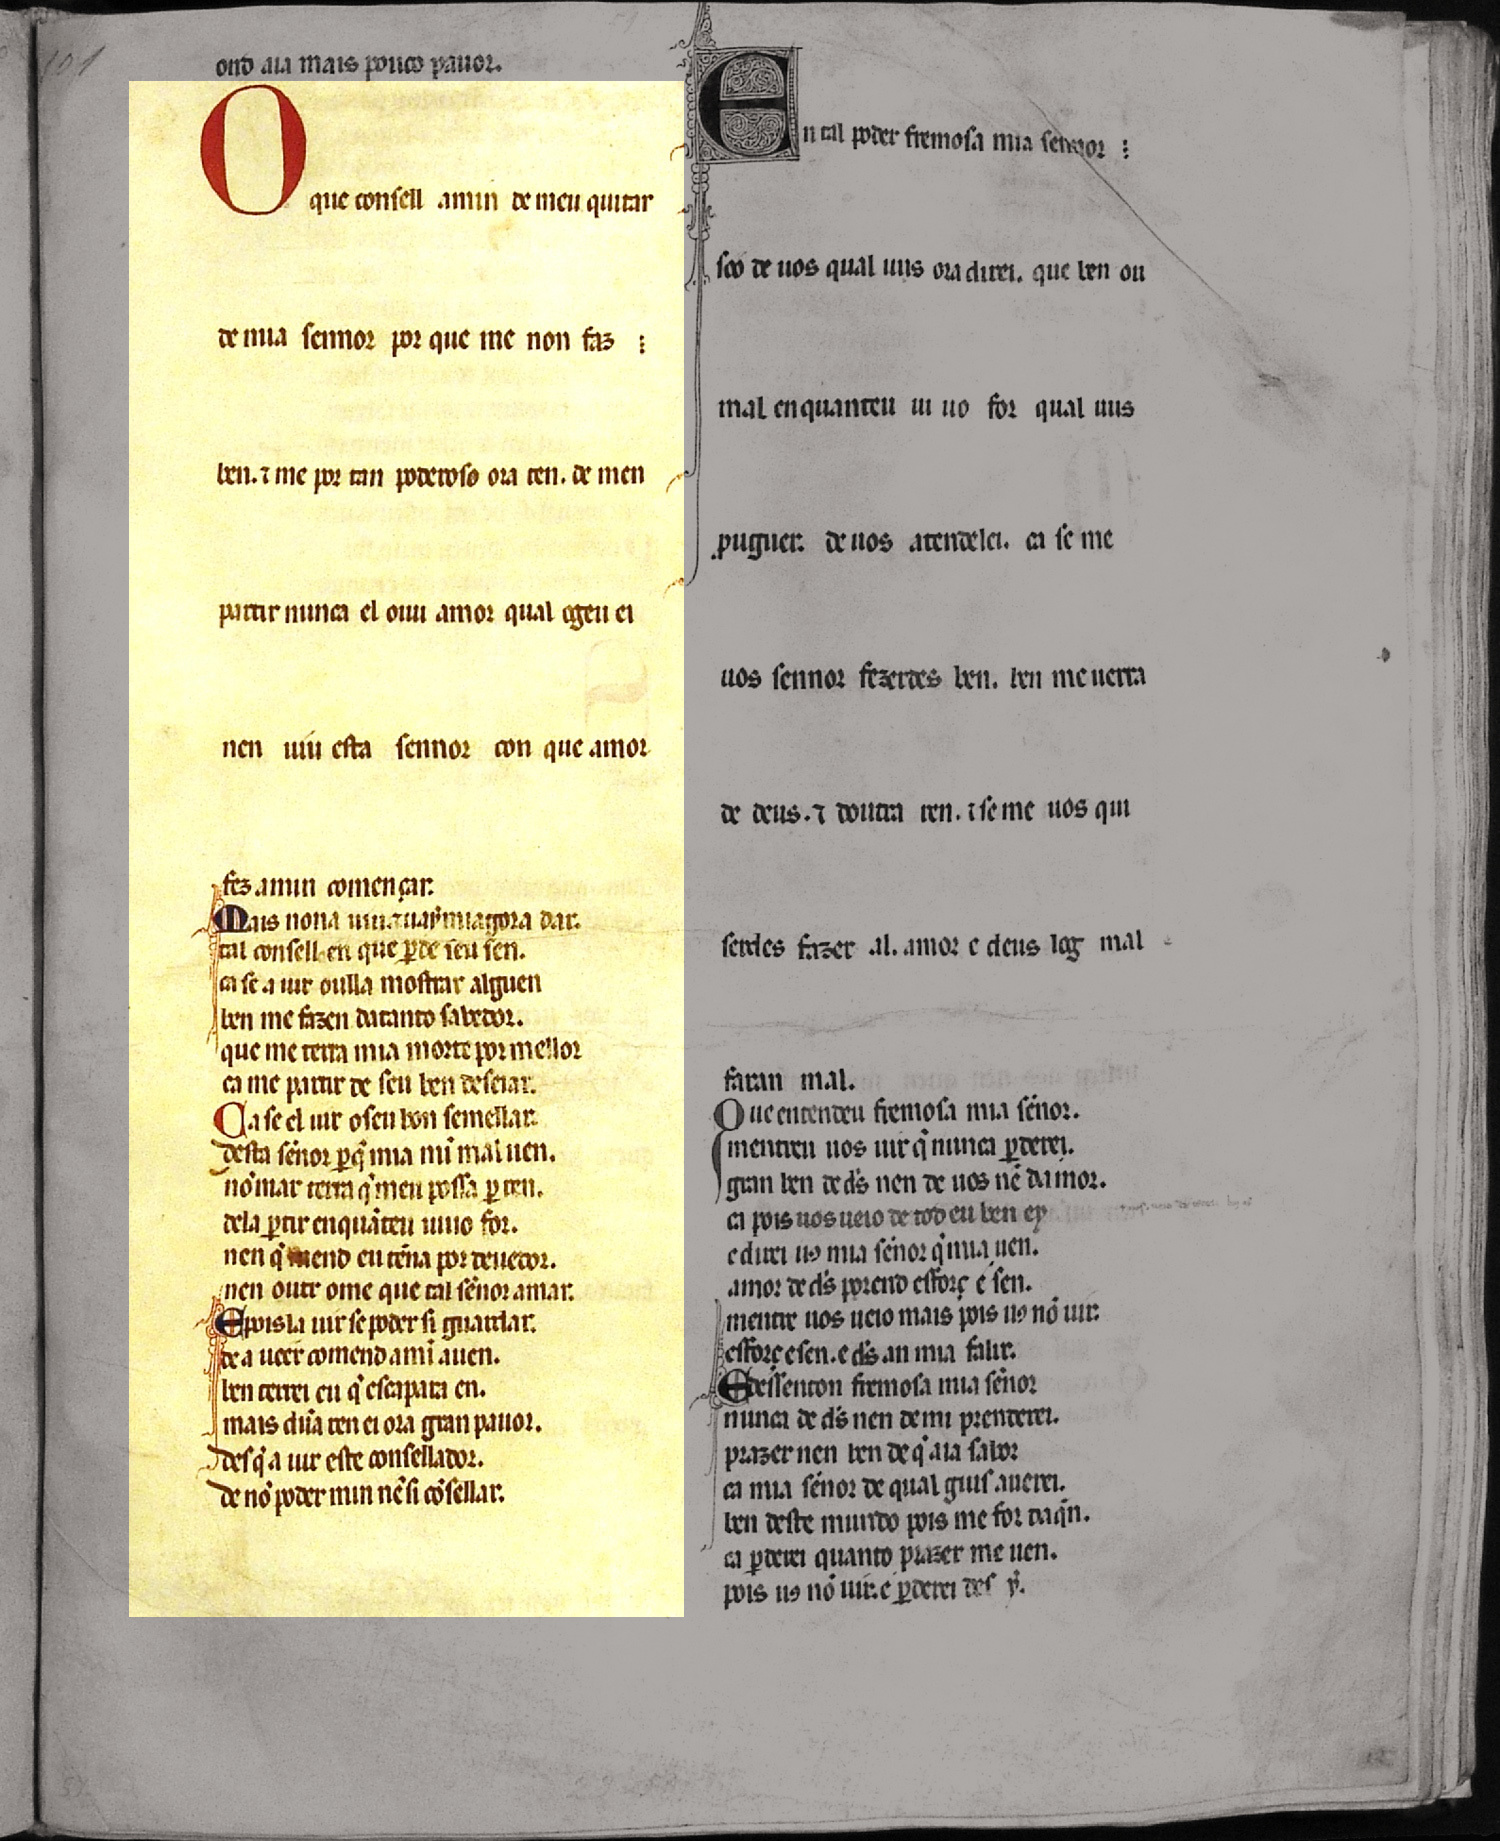 ond aia mais pouco pauor.
O que consell amin de meu quitar
de mia sennor por que me non faz
ben. ⁊ me por tan poderoso ora ten. de men
partir nunca el ouui amor qual ogeu ei
nen uiu esta sennor con que amor
fez amin començar.
Mais nona uiu
tal consell en que ꝑde seu sen.
ca se a uir oulla mostrar alguen
ben me fazen datanto sabedor.
que me terra mia morte por mellor
ca me partir de seu ben deseiar.
Ca se el uir o seu bon semellar.
desta sẽnor ꝑq̃ mia mĩ mal uen.
nõ mar terra q̃ meu possa ꝑ ren.
dela ꝑtir enquãteu uiuo for.
nen q̃ mend eu tẽna por deuedor.
nen outr ome que tal sẽnor amar.
E pois la uir se poder si guardar.
de a ueer comend ami auen.
ben terrei eu q̃ escapara en.
mais dũa ren ei ora gran pauor.
des q̃ a uir este consellador.
de nõ poder min nẽ si cõsellar.
En tal poder fremosa mia sennor
soo de uos qual uus ora direi. que ben ou
mal enquanteu ui uo for qual uus
puguer. de uos atendelei. ca se me
uos sennor fezerdes ben. ben me uerra
de deus. ⁊ doutra ren. ⁊ se me uos qui
serdes fazer al. amor e deus log mal
faran mal.
Que entendeu fremosa mia sẽnor.
mentreu uos uir q̃ nunca ꝑderei.
gran ben de d̃s nen de uos nẽ damor.
ca pois uos ueio de tod eu ben ey
e direi uꝯ mia sẽnor q̃ mia uen.
amor de d̃s prend esforç e sen.
mentre uos ueio mais pois uꝯ nõ uir.
esforç e sen. e d̃s an mia falir.
E des senton fremosa mia sẽnor
nunca de d̃s nen de mi prenderei.
prazer nen ben de q̃ aia sabor
ca mia sẽnor de qual guis auerei.
ben deste mundo pois me for daq̃n.
ca ꝑderei quanto prazer me uen.
pois uꝯ nõ uir. e ꝑderei des y.